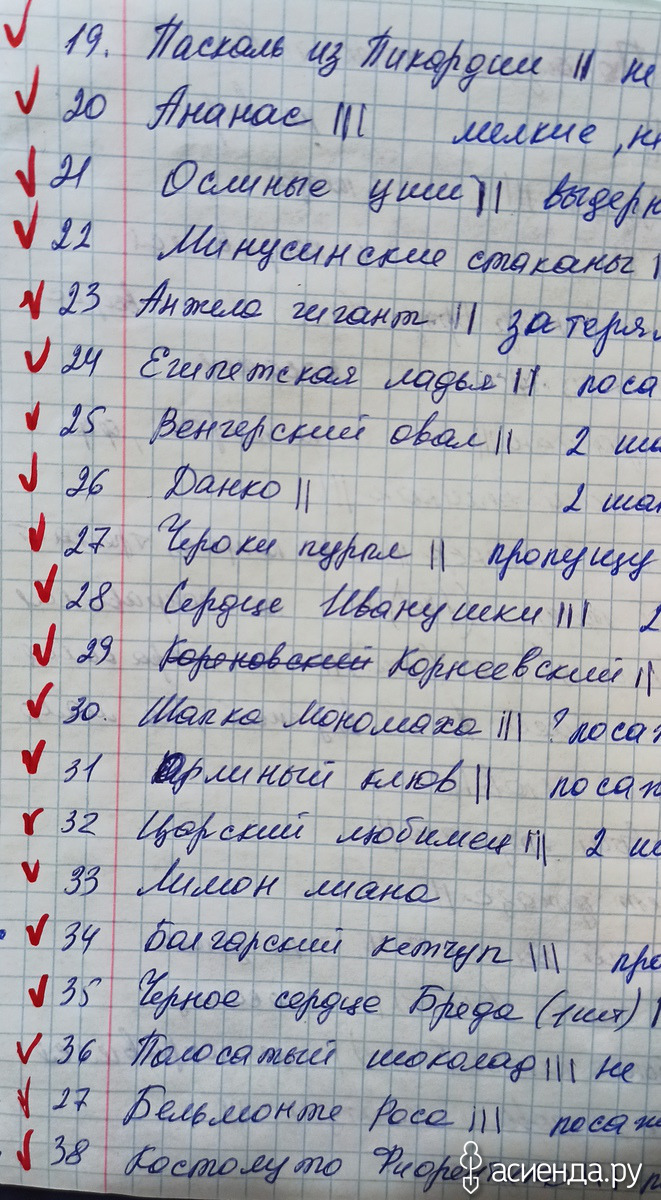 19. Паскаль из Пикардии || не
20 Ананас ||| мелкие, не
21 Ослиные уши || выдерн
22 Минусинские стаканы |
23 Анжела гигант || затеря
24 Египетская ладья || поса
25 Венгерский овал || 2 ша
26 Данко || 2 шт
27 Чероки пурпл || пропущу
28 Сердце Иванушки ||| 2
29 Кореновский Корнеевский ||
30. Шапка Мономаха ||| ? посаж
31 Орлиный клюв || посаж
32 Царский любимец ||| 2 ш
33 Лимон лиана
34 Болгарский кетчуп ||| про
35 Черное сердце Бреда (1 шт) |
36 Полосатый шоколад ||| не
27 Бельмонте Роса ||| посаж
38 Костолуто Фиорент
асиенда.ру